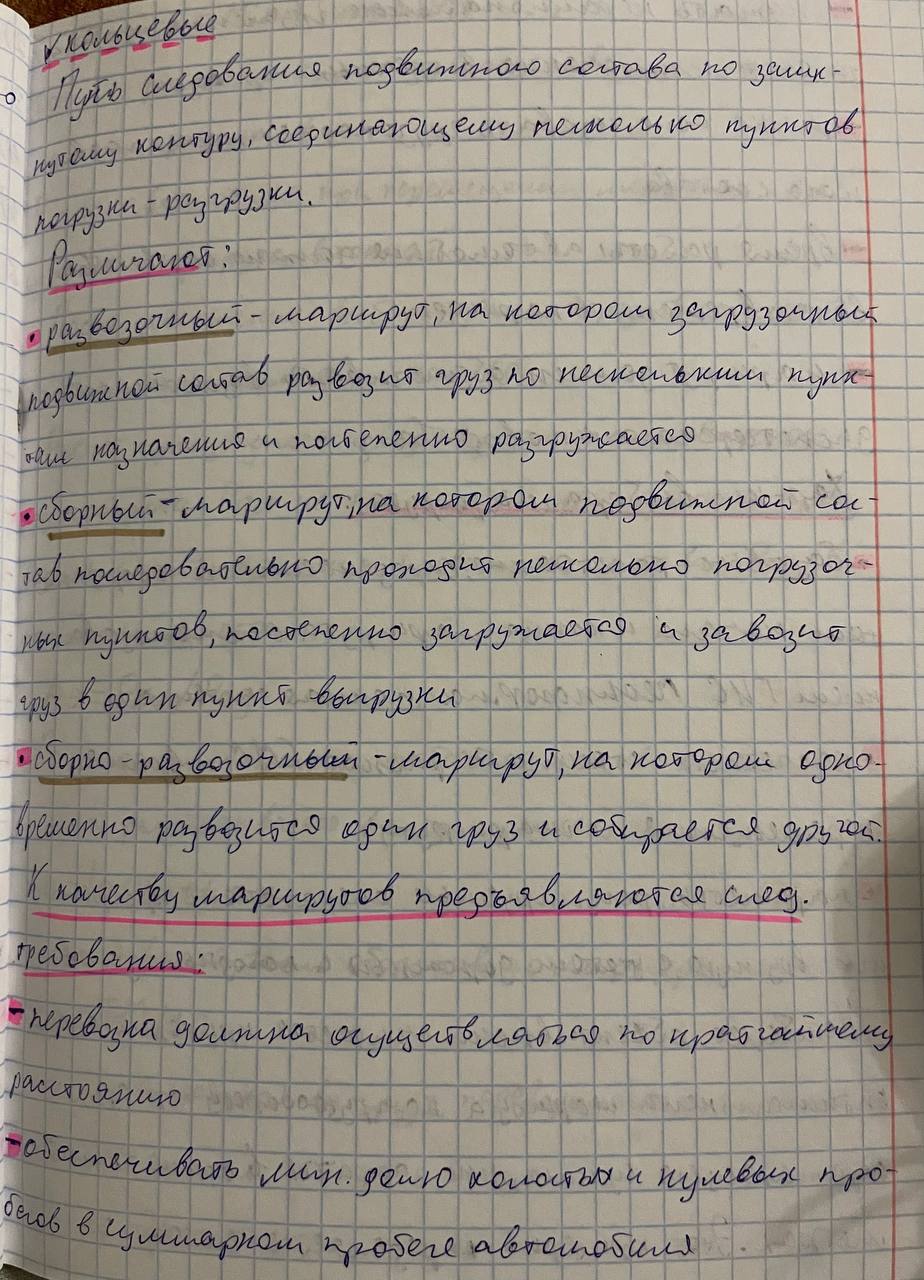 ✓кольцевые
Путь следования подвижного состава по замк-
нутому контуру, соединающему несколько пунктов
погрузки-разгрузки.
Различают:
• развозочный - маршрут, на котором загрузочный
подвижной состав развозит груз по нескольким пунк-
там назначения и постепенно разгружается
• сборный - маршрут, на котором подвижной сос-
тав последовательно проходит несколько погрузоч-
ных пунктов, постепенно загружается и завозит
груз в один пункт выгрузки
• сборно-развозочный - маршрут, на котором одно-
временно развозится один груз и собирается другой.
К качеству маршрутов предъявляются след.
требования:
- перевозка должна осуществляться по кратчайшему
расстоянию
- обеспечивать мин. долю холостых и нулевых про-
бегов в суммарном пробеге автомобиля